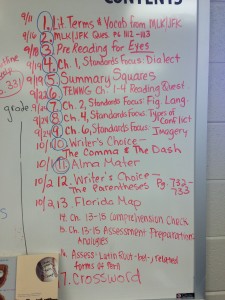 CONTENTS
9/11 1. Lit. Terms & Vocab from MLK/JFK
9/16 2. MLK/JFK Ques. pg. 112-113
9/18 3. Pre Reading for Eyes
9/19 4. Ch. 1, Standards Focus: Dialect
5. Summary Squares
6. TEWWG Ch. 1-4 Reading Quest
7. Ch. 2, Standards Focus: Fig. Lang.
8. Ch. 4, Standards Focus: Types of Conflict
9. Ch. 6, Standards Focus: Imagery
10. Writer's Choice -
The Comma & The Dash
10/1 11. Alma Mater
10/2 12. Writer's Choice -
The Parentheses Pg. 732-733
10/2 13. Florida Map
14. Ch. 13-15 Comprehension Check
15. Ch. 13-15 Assessment Preparation:
Analogies
16. Assess: Latin Root - related
forms of
17. Crossword
grade